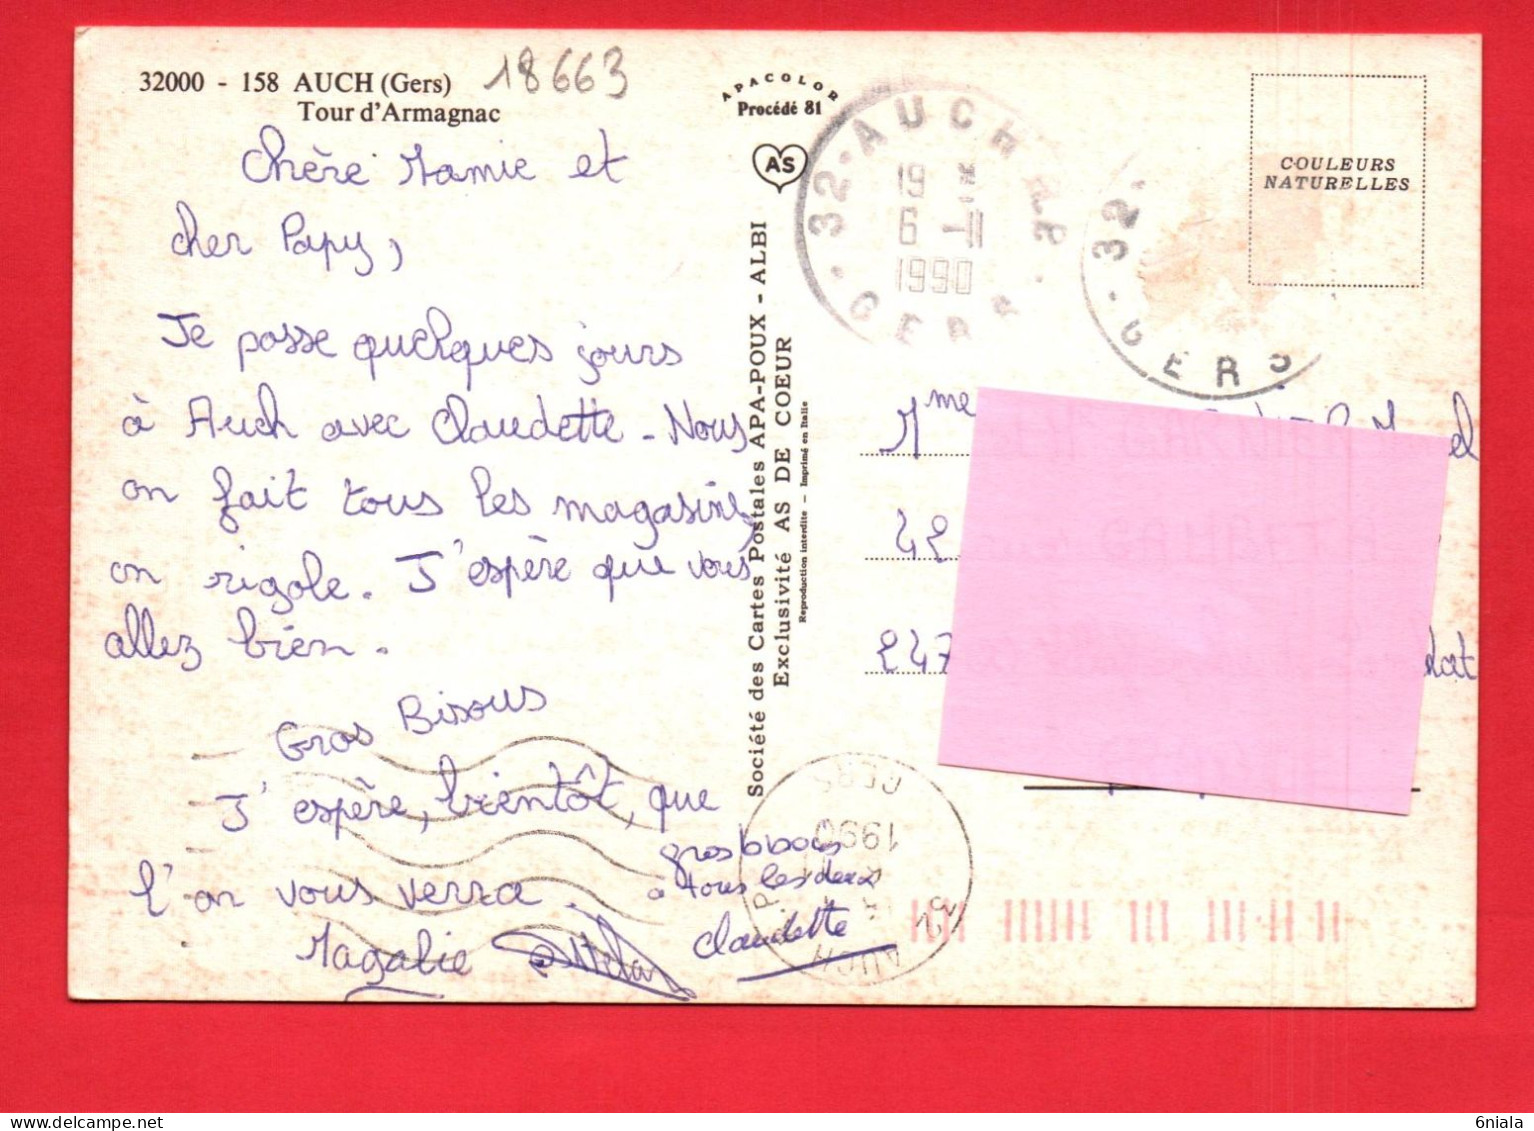 32000 - 158 AUCH (Gers)
Tour d'Armagnac
18663
APACOLOR
Procédé 81
AS
Chère Mamie et
cher Papy,
Je passe quelques jours
à Auch avec Claudette - Nous
on fait tous les magasins,
on rigole. J'espère que vous
allez bien.
Gros Bisous
J'espère, bientôt, que
l'on vous verra.
Magalie
gros bisous
a tous les deux
Claudette
Société des Cartes Postales APA-POUX - ALBI
Exclusivité AS DE COEUR
Reproduction interdite - Imprimé en Italie
32 · AUCH
19
6 - 11
1990
GERS
32
GERS
COULEURS
NATURELLES
Mme
42
247
32 AUCH
1990
GERS
6niala